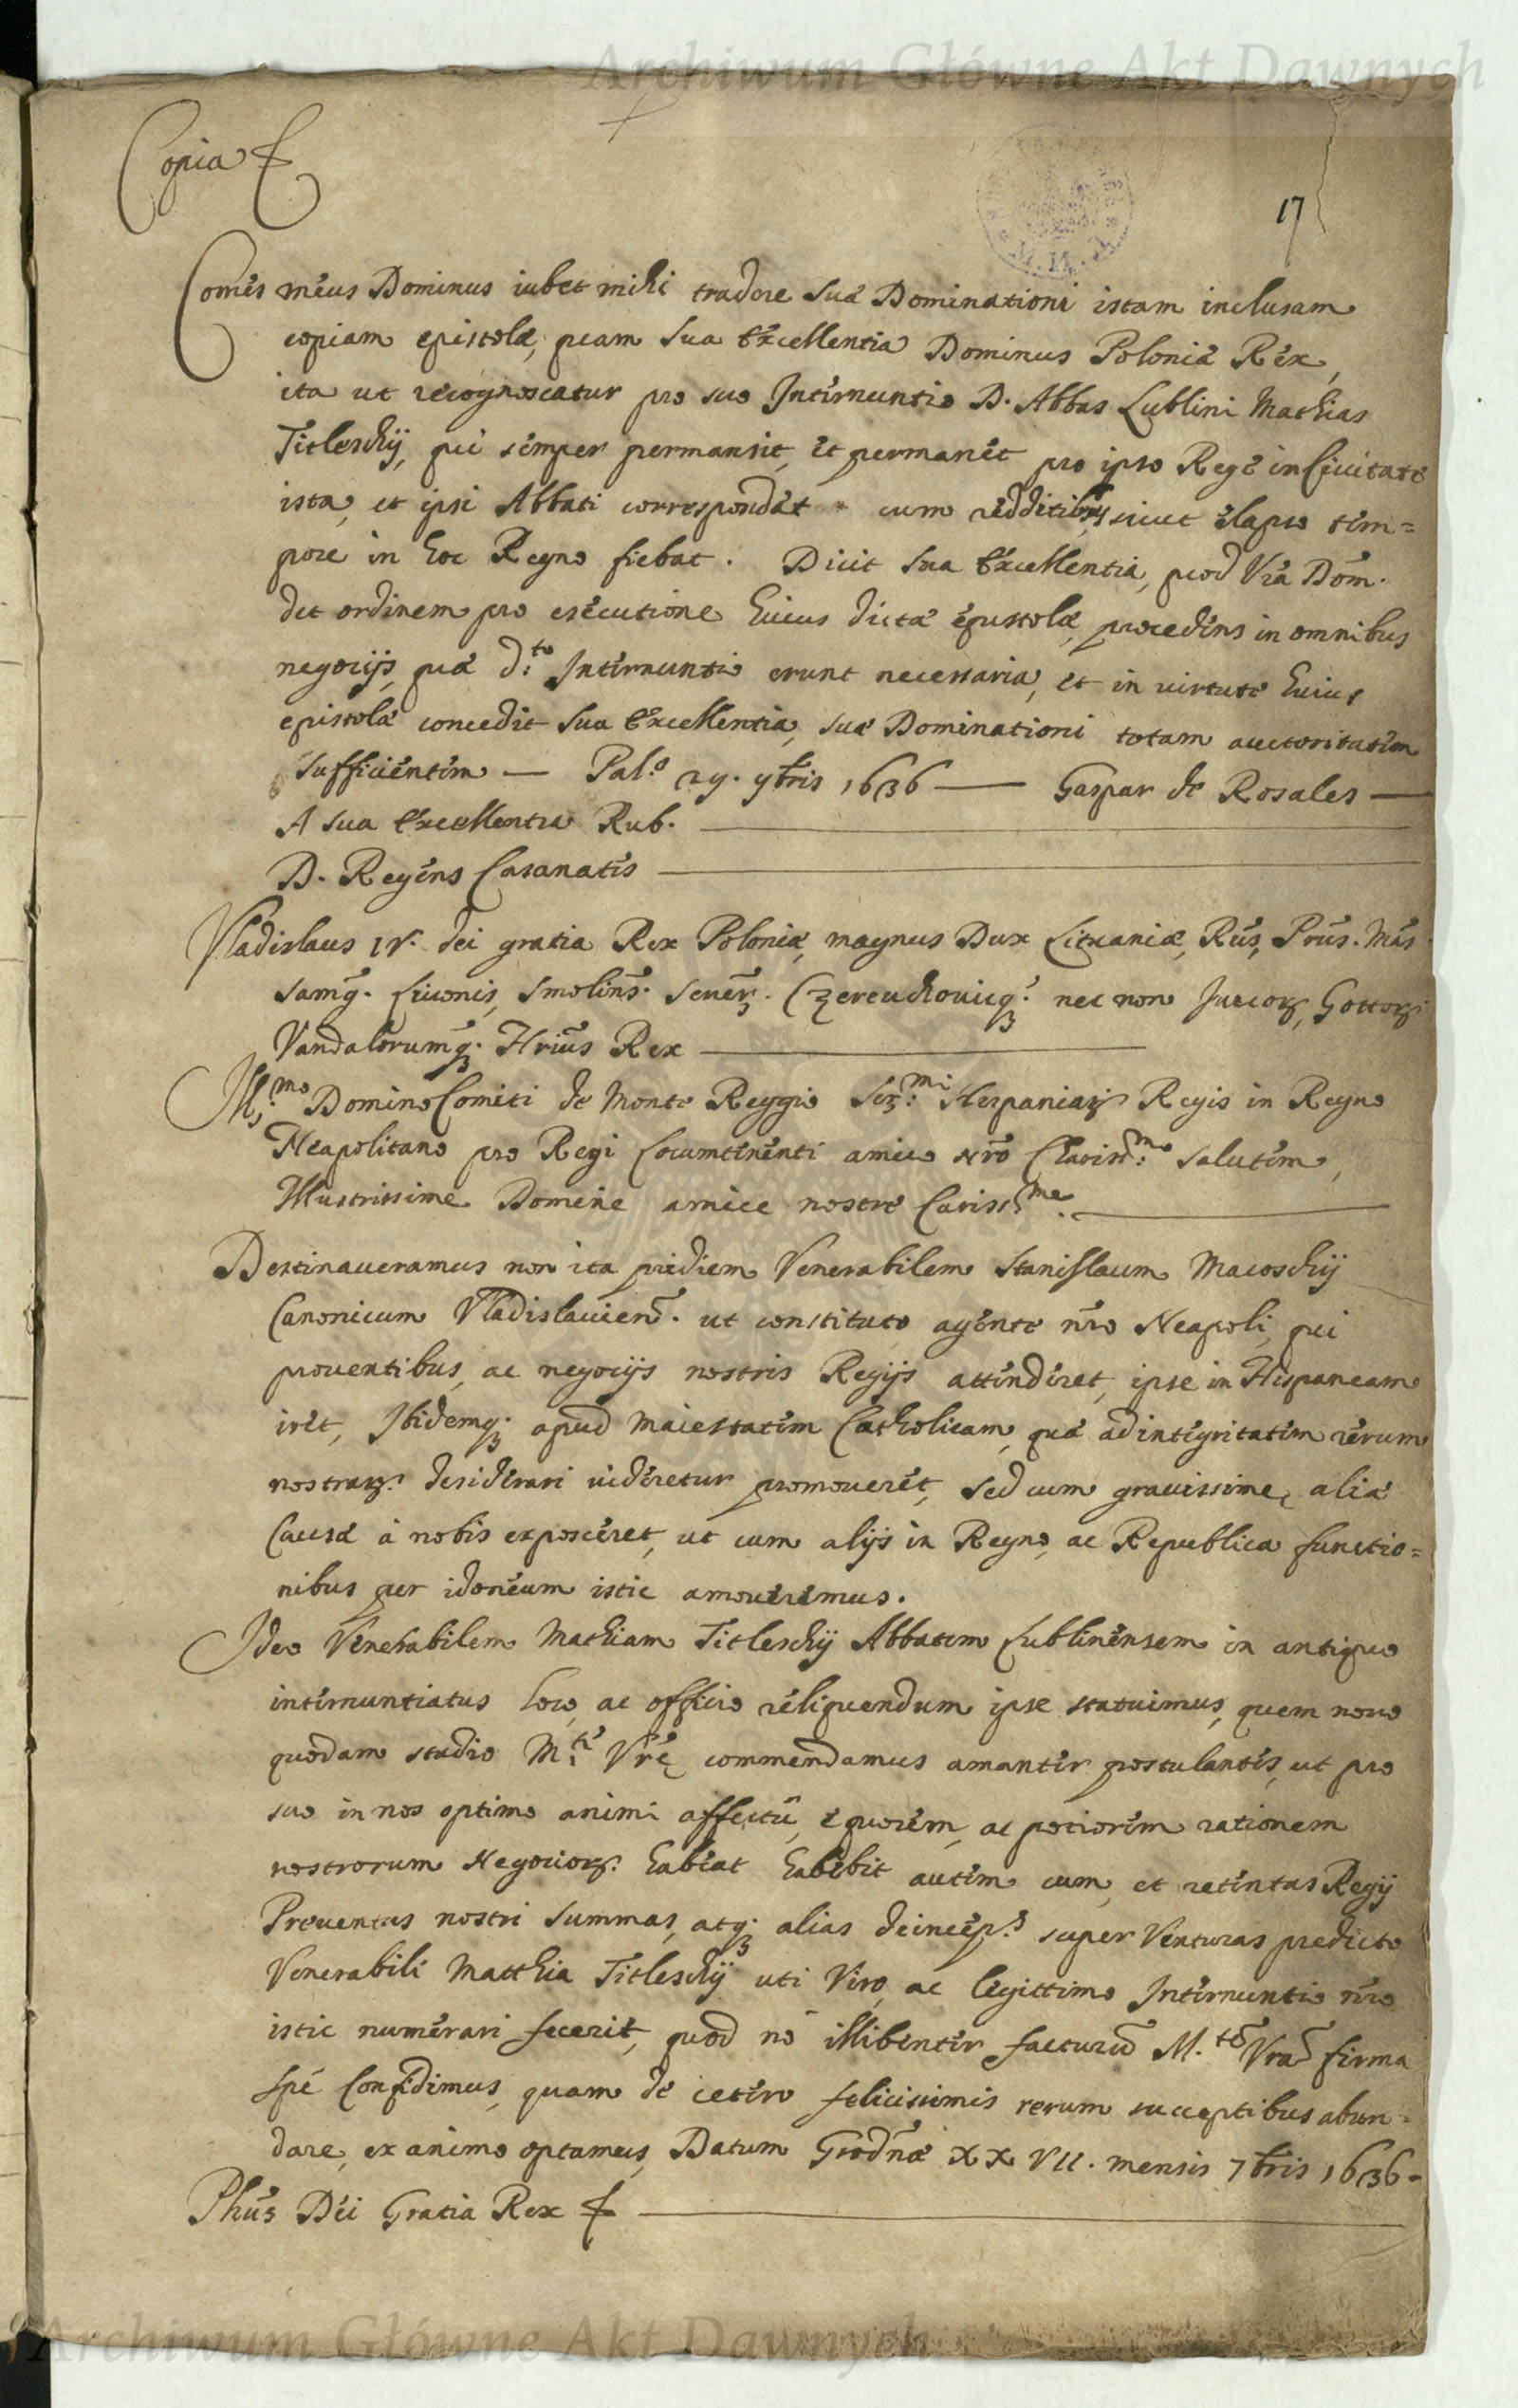 Archiwum Główne Akt Dawnych
Copia
17
Comes meus Dominus iubet mihi tradere suæ Dominationi istam inclusam
copiam epistolæ, quam sua Excellentia Dominus Poloniæ Rex,
ita ut recognoscatur pro suo Internuntio D. Abbas Lublini Mathias
Titleschij, qui semper permansit, et permanet pro ipso Rege in Civitate
ista, et ipsi Abbati correspondet cum redditibus, sicut elapso tem=
pore in hoc Regno fiebat. Dicit sua Excellentia, quod Vra Dom.
det ordinem pro esecutione huius dictæ epistolæ procedens in omnibus
negocijs, quæ d.to Internuntio erunt necessaria, et in virtute huius
epistolæ concedit sua Excellentia, suæ Dominationi totam auctoritatem
sufficientem — Pal.o 29. 9bris 1636 — Gaspar de Rosales —
A sua Excellentia Rub.
D. Regens Casanatis
Vladislaus IV. dei gratia Rex Poloniæ, magnus Dux Lituaniæ, Rus, Prus. Mas
samq. Livonis, Smolins. Sever. Czereuchouicq. nec non Suecor, Gottor
Vandalorumq. Hrius Rex
Ill.mo Domino Comiti de Monte Reggio Ser.mi Hispaniar Regis in Regno
Neapolitano pro Regi Locumtenenti amico nro Clariss.mo salutem,
Illustrissime Domine amice nostre Cariss.me
Destinaueramus non ita pridiem Venerabilem Stanislaum Macoschij
Canonicum Vladislauien. ut constituto agente nro Neapoli, qui
prouentibus, ac negocijs nostris Regijs attenderet, ipse in Hispaneam
iret, Ibidemq. apud Maiestatem Catholicam, quæ ad integritatem rerum
nostrar. desiderari uideretur promoueret, sed cum grauissime, aliæ
Causæ à nobis exposceret, ut cum alijs in Regno, ac Republica functio=
nibus per idoneum istic amoueremus.
Ideo Venerabilem Mathiam Titleschij Abbatem Lublinensem in antiquo
internuntiatus loco, ac officio reliquendum ipse statuimus, quem nouo
quodam studio M.ti Vre commendamus amanter postulantes, ut pro
suo in nos optimo animi affectu, equorem, ac potiorem rationem
nostrorum Negocior. habeat habebit autem cum, et retentas Regij
Prouentus nostri summas, atq. alias deinceps super Venturas predicto
Venerabili Matthia Titleschij uti Viro, ac legittimo Internuntio nro
istic numerari fecerit, quod nō illibenter facturū M.tē Vrā firma
spe Confidimus, quam de cetero felicissimis rerum succeptibus abun=
dare, ex animo optamus, Datum Grodnæ XXVII. mensis 7bris 1636.
Phus Dei Gratia Rex
Archiwum Główne Akt Dawnych